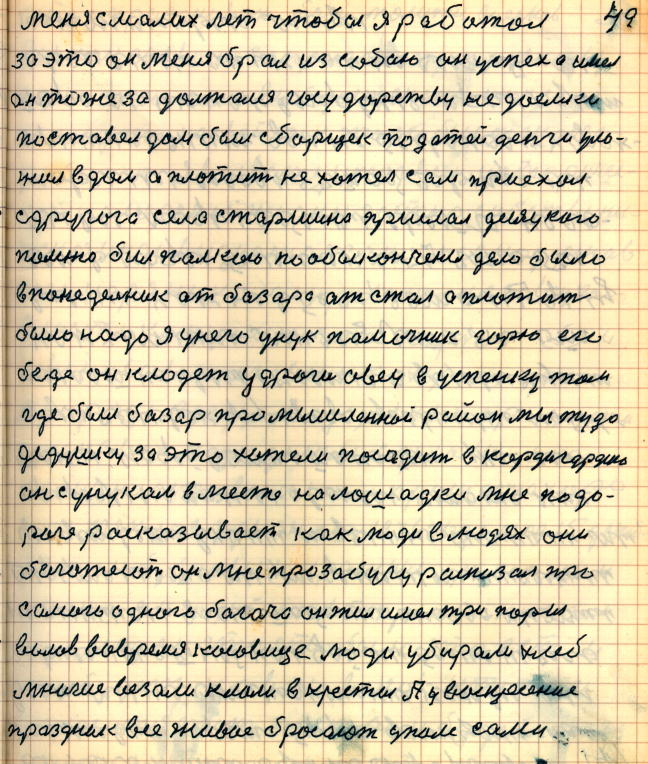 меня с малих лет чтобы я работал 49
за это он меня брал из собою он успеха имел
он тоже за должался государству не доемки
поставел дом был сборщек податей денги уло-
жил в дом а плотит не хотел сам приехал
с другога села старшина прислал
помню бил палкою по обыконченя дело было
в понеделник ат базара атстал а плотит
было надо я у него унук памочник горю его
беде он кладет у дроги овец в успенку там
где был базар промышленной район мы туда
дедушку за это хотели посадит в кордегардию
он с унукам вместе на лошадки мне по до-
роге расказывает как люди в людях они
богатеют он мне про забугу расказал про
самого одного багача он жил имел три пары
волов вовремя косовице люди убирали хлеб
многие везали клали в крести А у воскресение
праздник все живое бросают упали сами